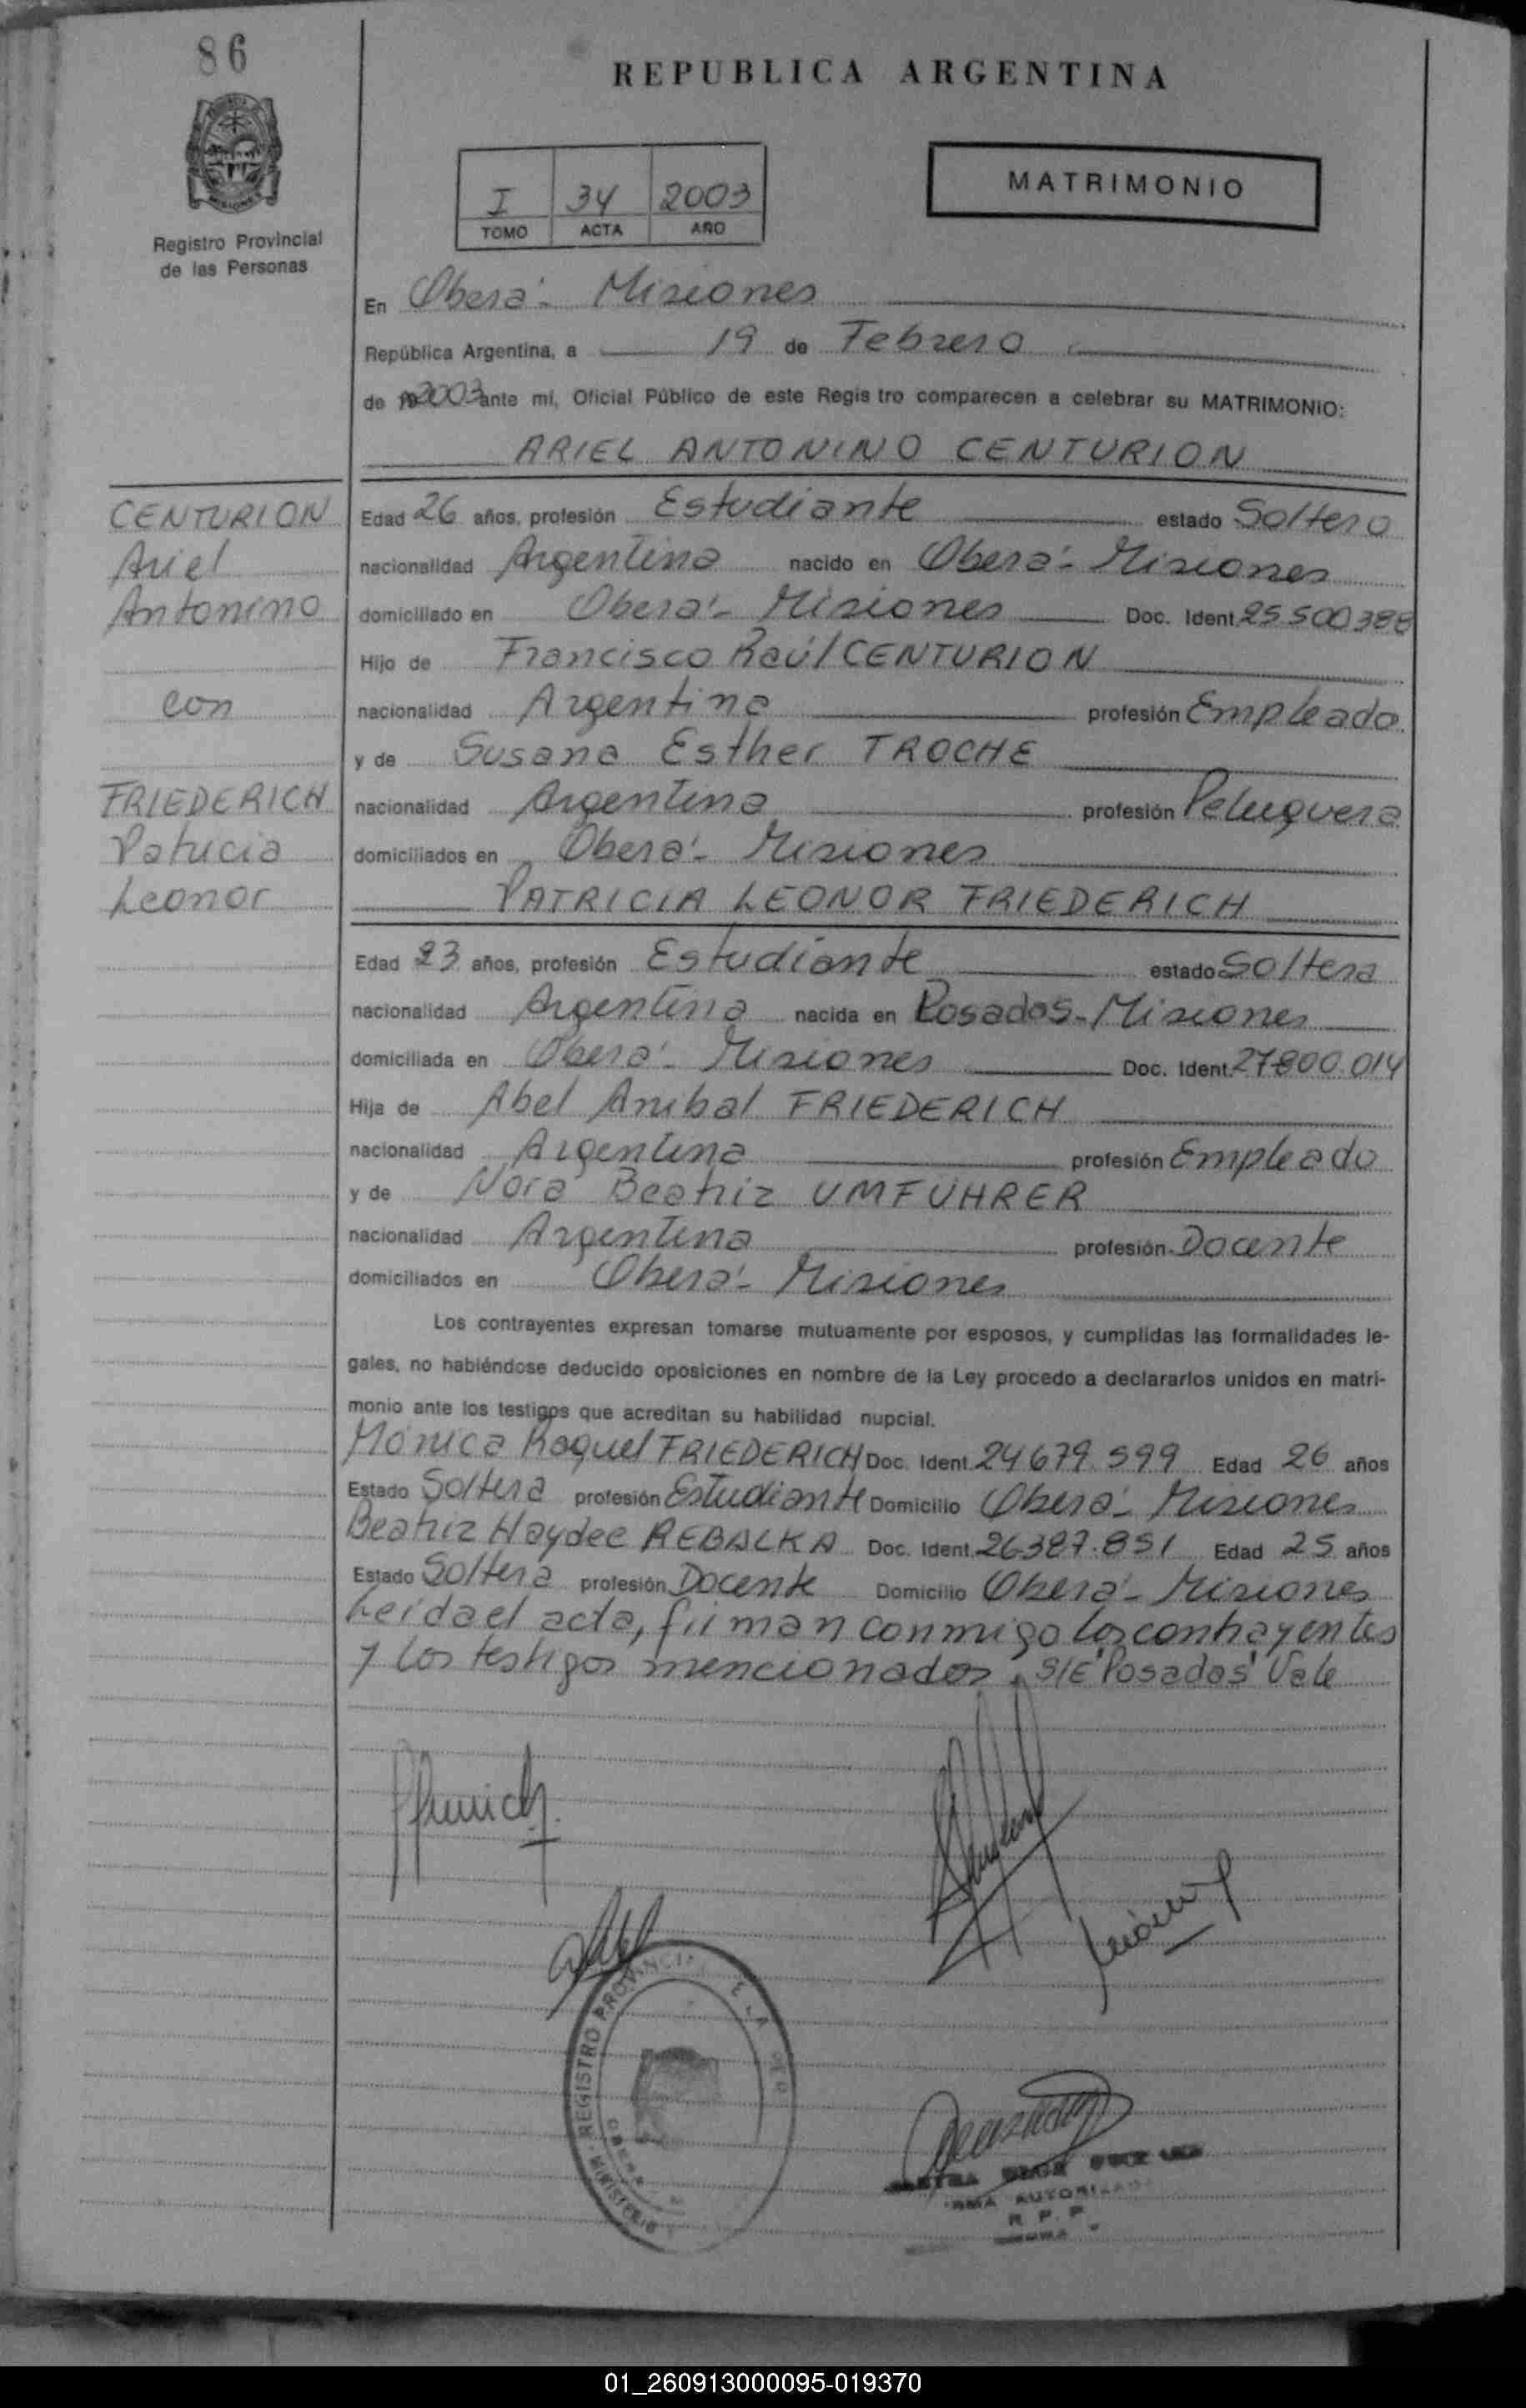 86
REPUBLICA ARGENTINA
MISIONES
Registro Provincial
de las Personas
I 34 2003
TOMO ACTA AÑO
MATRIMONIO
En Oberá - Misiones
República Argentina, a 19 de Febrero
de 2003 ante mí, Oficial Público de este Regis tro comparecen a celebrar su MATRIMONIO:
ARIEL ANTONINO CENTURION
CENTURION
Ariel
Antonino
con
FRIEDERICH
Patricia
Leonor
Edad 26 años, profesión Estudiante estado Soltero
nacionalidad Argentina nacido en Oberá - Misiones
domiciliado en Oberá - Misiones Doc. Ident. 25.500.388
Hijo de Francisco Raúl CENTURION
nacionalidad Argentina profesión Empleado
y de Susana Esther TROCHE
nacionalidad Argentina profesión Peluquera
domiciliados en Oberá - Misiones
PATRICIA LEONOR FRIEDERICH
Edad 23 años, profesión Estudiante estado Soltera
nacionalidad Argentina nacida en Posadas - Misiones
domiciliada en Oberá - Misiones Doc. Ident. 27.800.014
Hija de Abel Anibal FRIEDERICH
nacionalidad Argentina profesión Empleado
y de Nora Beatriz UMFUHRER
nacionalidad Argentina profesión Docente
domiciliados en Oberá - Misiones
Los contrayentes expresan tomarse mutuamente por esposos, y cumplidas las formalidades le-
gales, no habiéndose deducido oposiciones en nombre de la Ley procedo a declararlos unidos en matri-
monio ante los testigos que acreditan su habilidad nupcial.
Mónica Raquel FRIEDERICH Doc. Ident. 24.679.599 Edad 26 años
Estado Soltera profesión Estudiante Domicilio Oberá - Misiones
Beatriz Haydee REBALKA Doc. Ident. 26.387.851 Edad 25 años
Estado Soltera profesión Docente Domicilio Oberá - Misiones
Leída el acta, firman conmigo los contrayentes
y los testigos mencionados. S/E "Posadas" Vale
REGISTRO PROVINCIAL
MINISTERIO
AUTORIZADA
R. P. P.
01_260913000095-019370